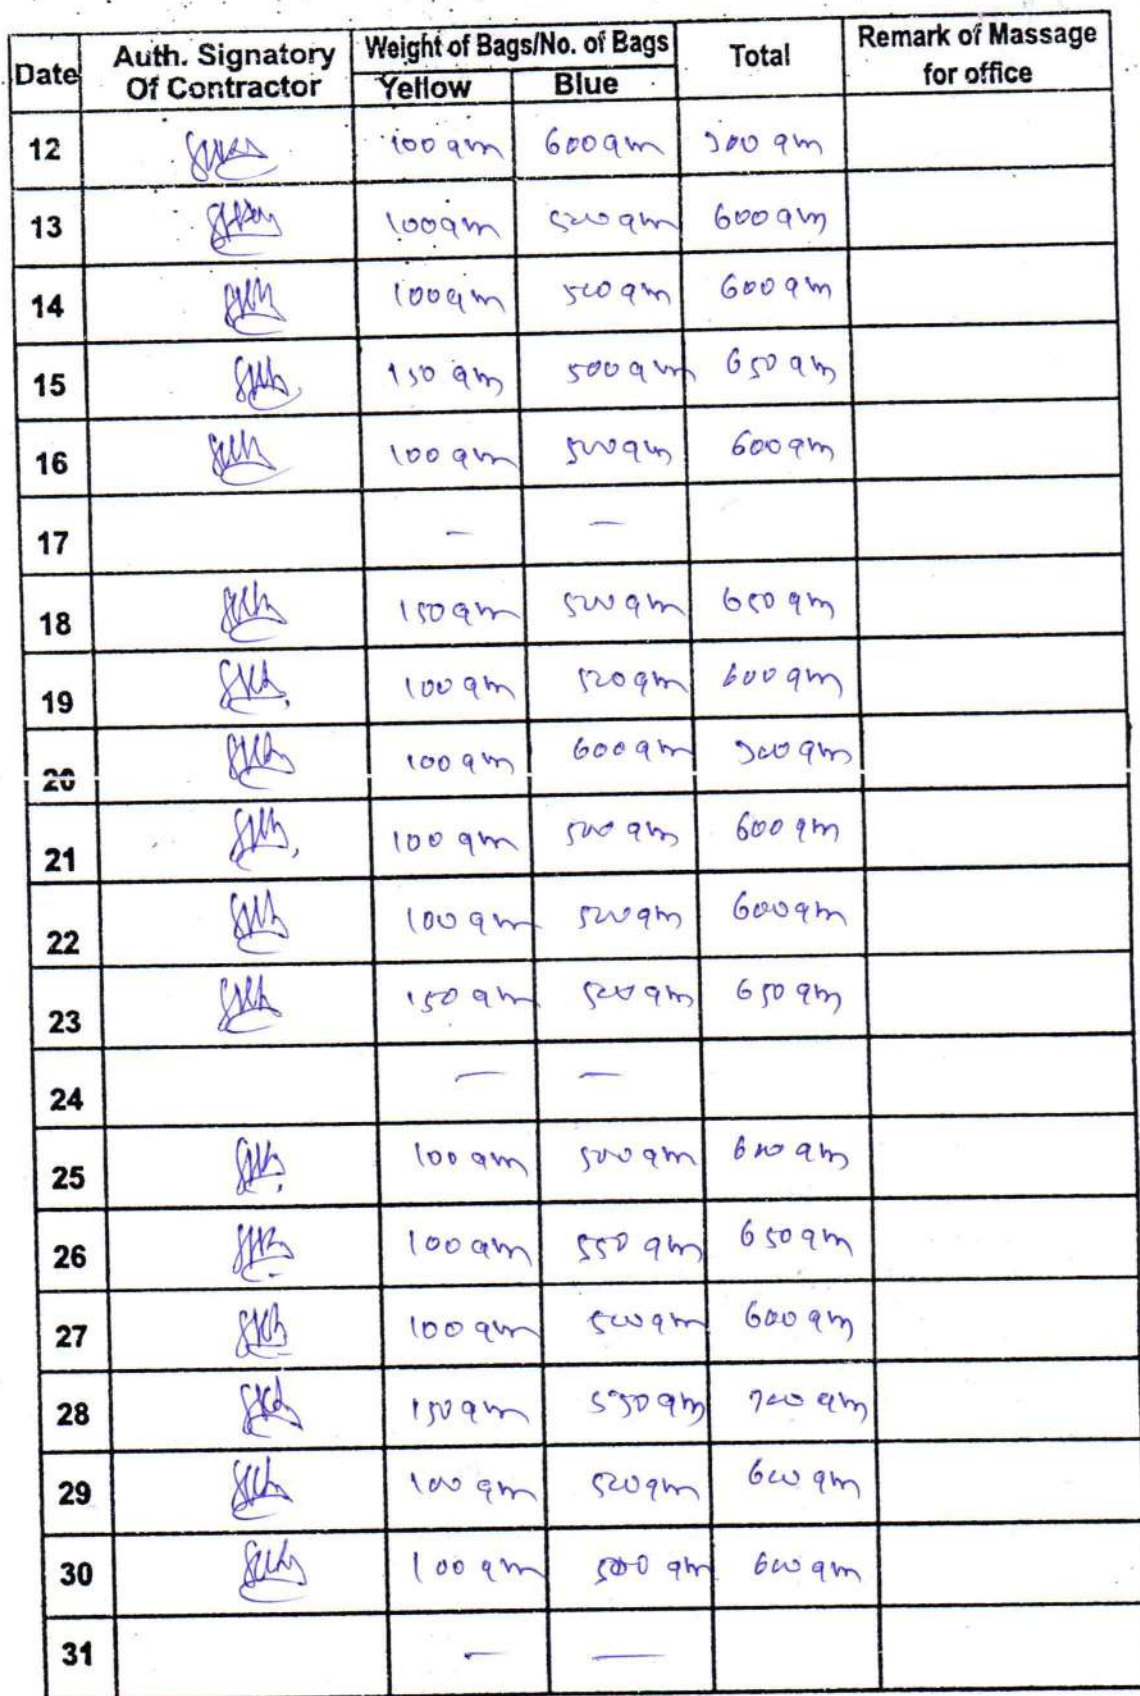 Date Auth. Signatory Of Contractor Weight of Bags/No. of Bags Yellow Blue Total Remark of Massage for office
12 100 gm 600 gm 700 gm
13 100 gm 500 gm 600 gm
14 100 gm 500 gm 600 gm
15 150 gm 500 gm 650 gm
16 100 gm 500 gm 600 gm
17 — —
18 150 gm 500 gm 650 gm
19 100 gm 500 gm 600 gm
20 100 gm 600 gm 700 gm
21 100 gm 500 gm 600 gm
22 100 gm 500 gm 600 gm
23 150 gm 500 gm 650 gm
24 — —
25 100 gm 500 gm 600 gm
26 100 gm 550 gm 650 gm
27 100 gm 500 gm 600 gm
28 150 gm 550 gm 700 gm
29 100 gm 500 gm 600 gm
30 100 gm 500 gm 600 gm
31 — —